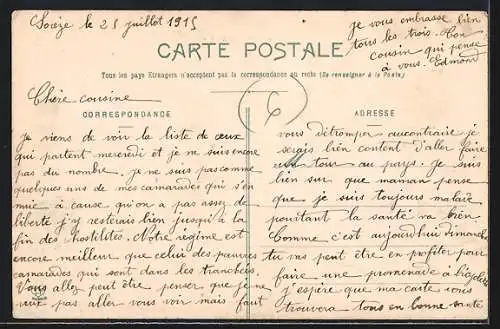 Sorèze le 25 juillet 1915
CARTE POSTALE
Tous les pays Etrangers n'acceptent pas la correspondance au recto (Se renseigner à la Poste)
Chère cousine
CORRESPONDANCE
je viens de voir la liste de ceux
qui partent mercredi et je ne suis encore
pas du nombre. je ne suis pas comme
quelques uns de mes camarades qui s'en
nuie à cause qu'on a pas assez de
liberté j'y resterais bien jusqu'à la
fin des hostilités. Notre régime est
encore meilleur que celui des pauvres
camarades qui sont dans les tranchées.
Vous allez peut être penser que je ne
veux pas aller vous voir mais faut
ADRESSE
vous détromper aucontraire je
serais bien content d'aller faire
un tour au pays. Je suis
bien sur que maman pense
que je suis toujours malade
pourtant la santé va bien.
Comme c'est aujourd'hui dimanche
tu vas peut être en profiter pour
faire une promenade à bicyclette
j'espère que ma carte vous
trouvera tous en bonne santé
je vous embrasse bien
tous les trois. Ton
cousin qui pense
à vous. Edmond
6